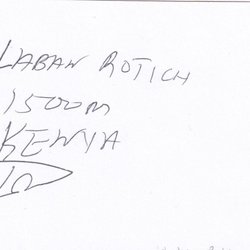 LABAN ROTICH
1500m
KENYA